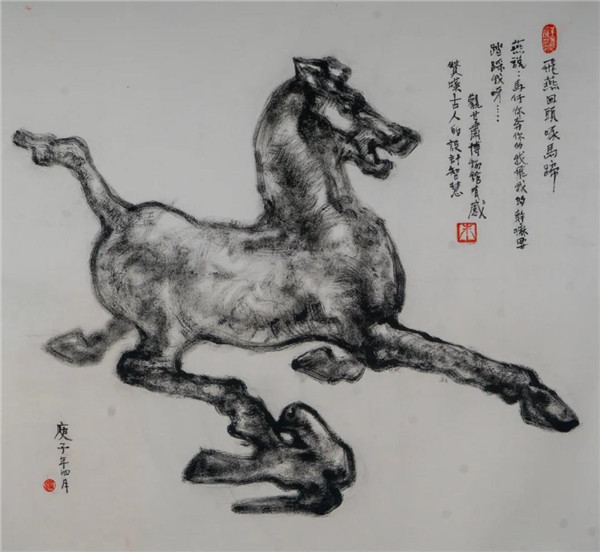 飛燕回頭啄馬蹄
燕說：馬仔你奔你的我飛我的幹嘛要
踏踩我呀……
觀甘肅博物館有感
贊嘆古人的設計智慧
朱
庚子年四月